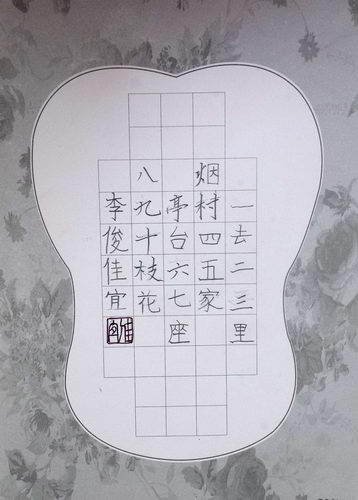 一去二三里
烟村四五家
亭台六七座
八九十枝花
李俊佳宜